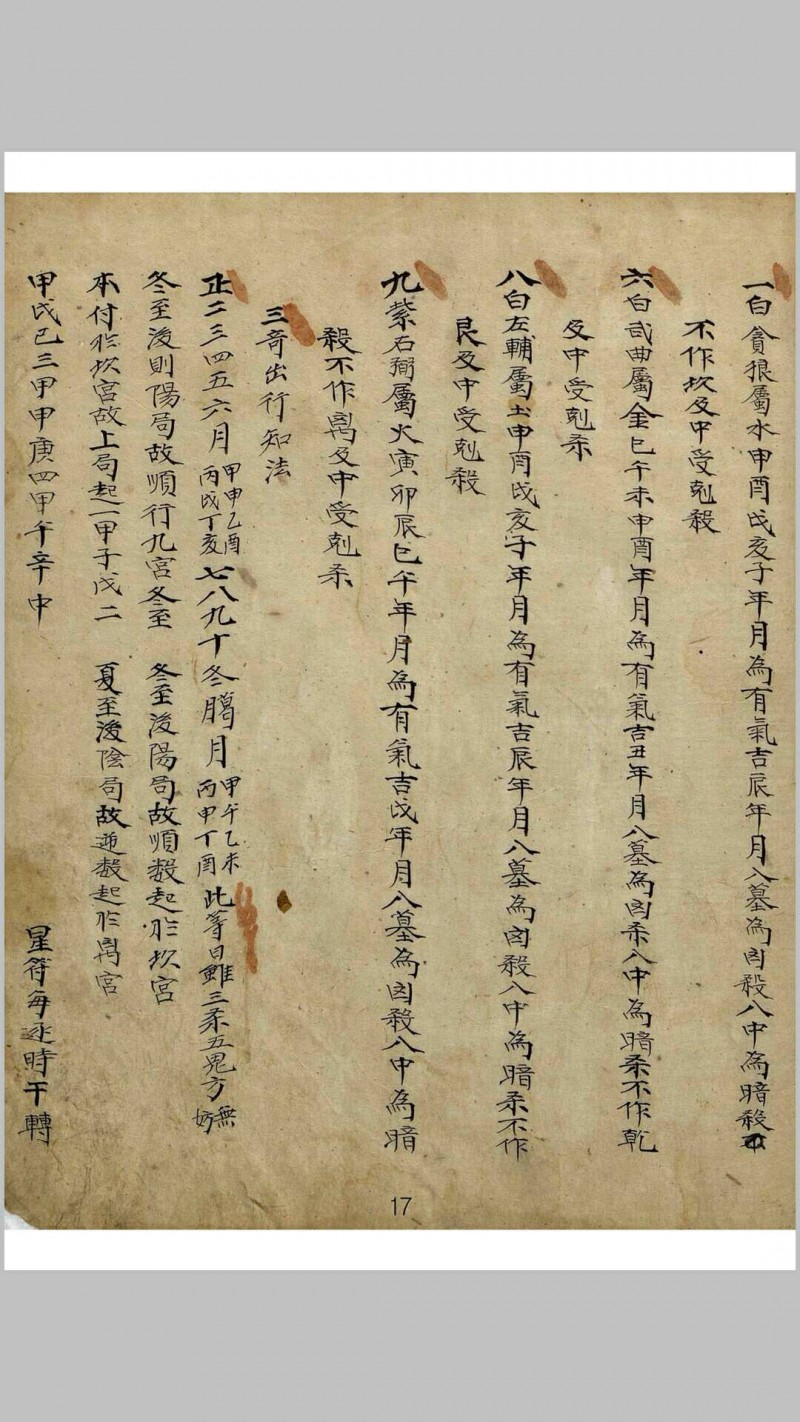 一白貪狼屬水申酉戌亥子年月為有氣吉辰年月入墓為凶殺入中為暗殺
不作坎及中受剋殺
六白武曲屬金巳午未申酉年月為有氣吉丑年月入墓為凶杀入中為暗杀不作乾
及中受剋杀
八白左輔屬土申酉戌亥子年月為有氣吉辰年月入墓為凶殺入中為暗杀不作
艮及中受剋殺
九紫右弼屬火寅卯辰巳午年月為有氣吉戌年月入墓為凶殺入中為暗
殺不作离及中受剋杀
三奇出行知法
正二三四五六月甲申乙酉丙戌丁亥七八九十冬臈月甲午乙未丙申丁酉此等日雖三杀五鬼方無妨
冬至後則陽局故順行九宮冬至 冬至後陽局故順数起於坎宮
本付於坎宮故上局起一甲子戊二 夏至後陰局故逆数起於离宮
甲戌己三甲申庚四甲午辛中 星符每逐時干轉
17